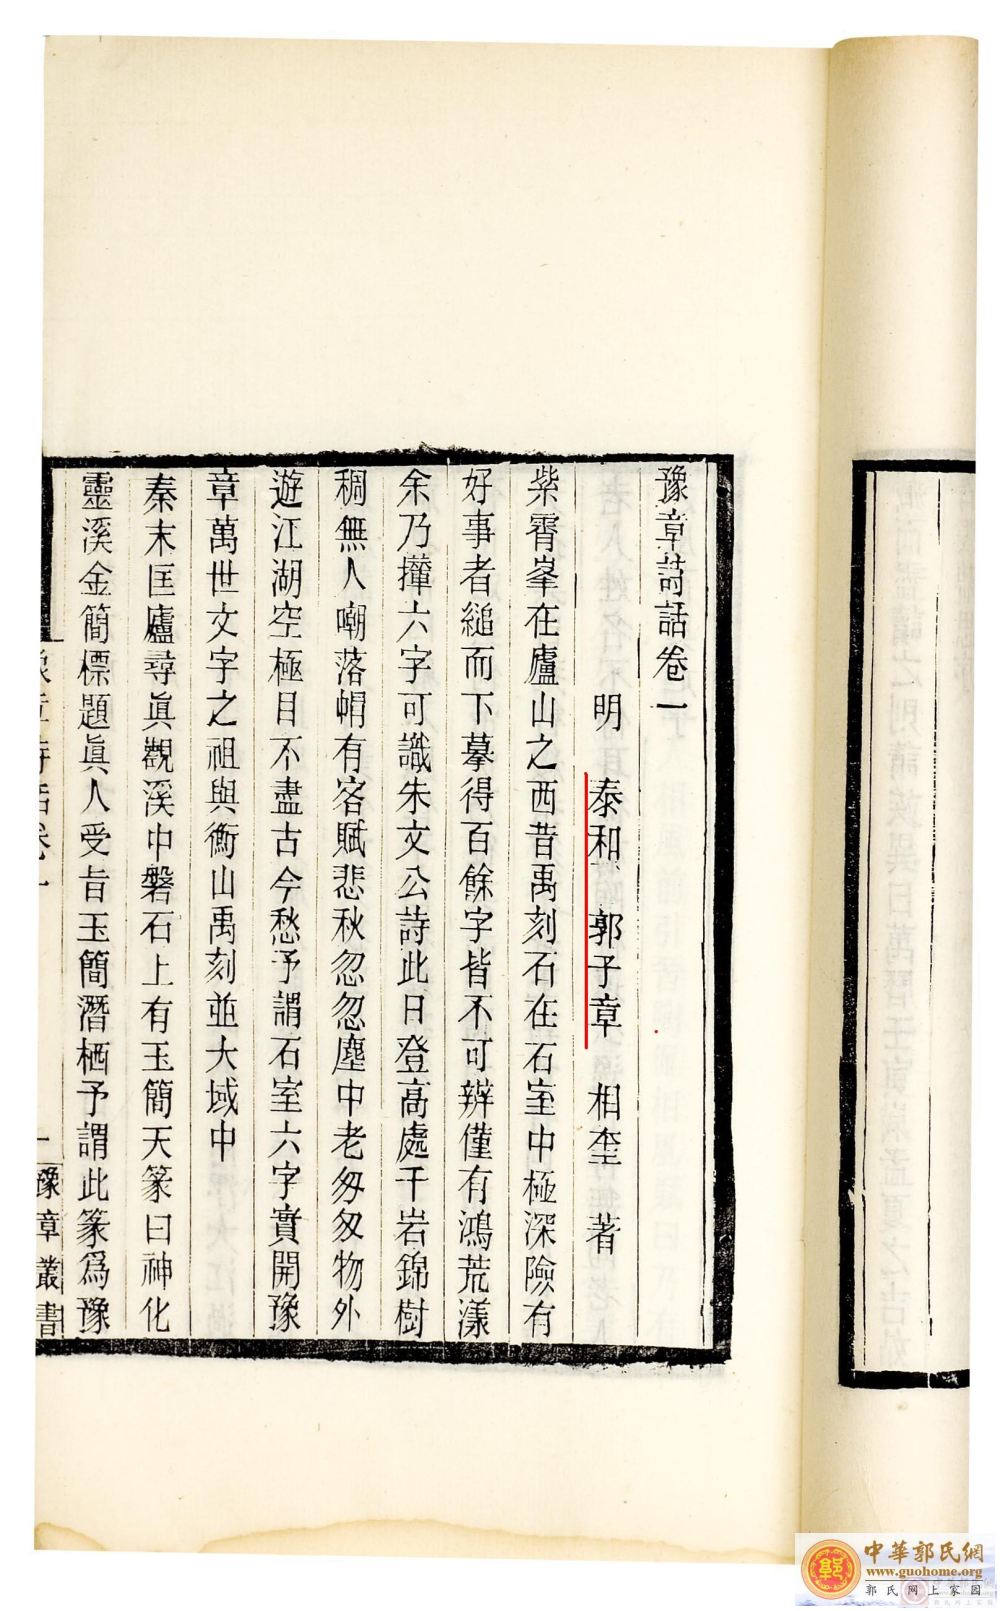 豫章詩話卷一
明 泰和 郭子章 相奎 著
紫霄峯在廬山之西昔禹刻石在石室中極深險有
好事者縋而下摹得百餘字皆不可辨僅有鴻荒漾
余乃攆六字可識朱文公詩此日登高處千岩錦樹
稠無人嘲落帽有客賦悲秋忽忽塵中老匆匆物外
遊江湖空極目不盡古今愁予謂石室六字實開豫
章萬世文字之祖與衡山禹刻並大域中
秦末匡廬尋眞觀溪中磐石上有玉簡天篆曰神化
靈溪金簡標題眞人受旨玉簡潛栖予謂此篆爲豫
豫章詩話卷一
一
豫章叢書
中華郭氏網
www.guohome.org
郭氏网上家园